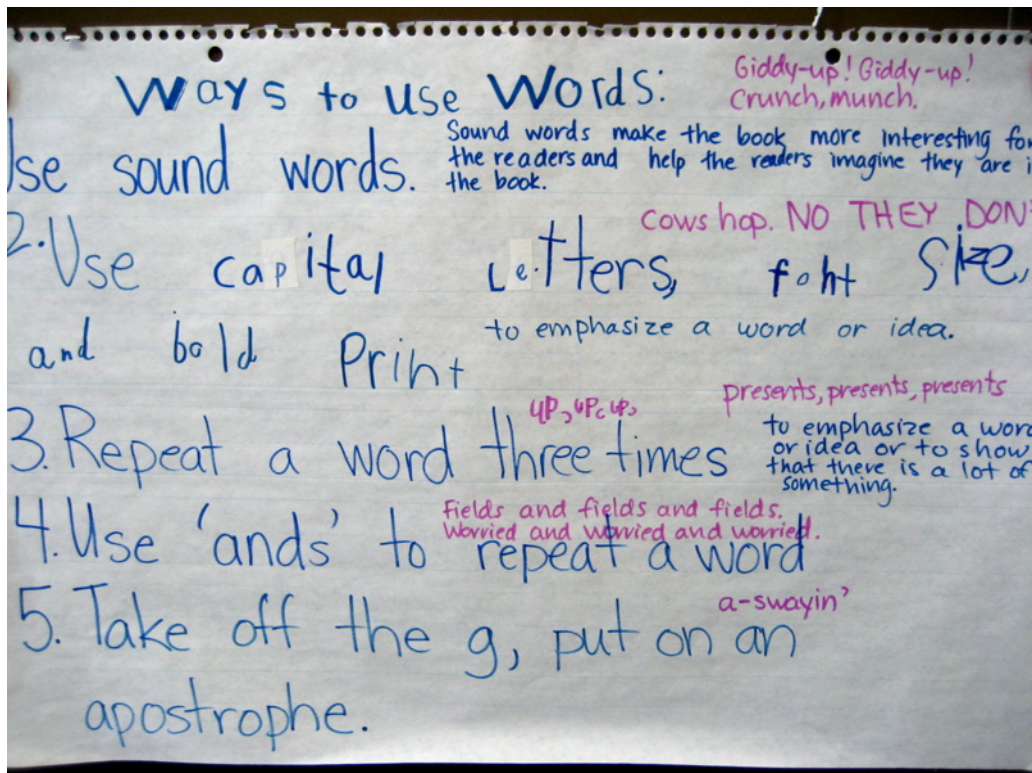 Ways to use Words:
Giddy-up! Giddy-up!
Crunch, munch.
Use sound words.
Sound words make the book more interesting for
the readers and help the readers imagine they are i
the book.
cows hop. NO THEY DON'
2. Use capital Letters, font size,
and bold Print
to emphasize a word or idea.
up, up, up,
presents, presents, presents
3. Repeat a word three times
to emphasize a word
or idea or to show
that there is a lot of
something.
Fields and fields and fields.
Worried and worried and worried.
4. Use 'ands' to repeat a word
a-swayin'
5. Take off the g, put on an
apostrophe.